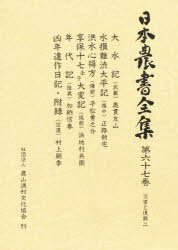 日本農書全集
第六十七巻
災害と復興二
大水記（武蔵）奥貫友山
水損難渋大平記（備中）
洪水心得方（備前）平松勇之介
享保十七壬子大変記（筑前）浜地利兵衛
年代記（陸奥）加納信春
凶年違作日記・附録（信濃）村上嗣季
社団法人 農山漁村文化協会 刊